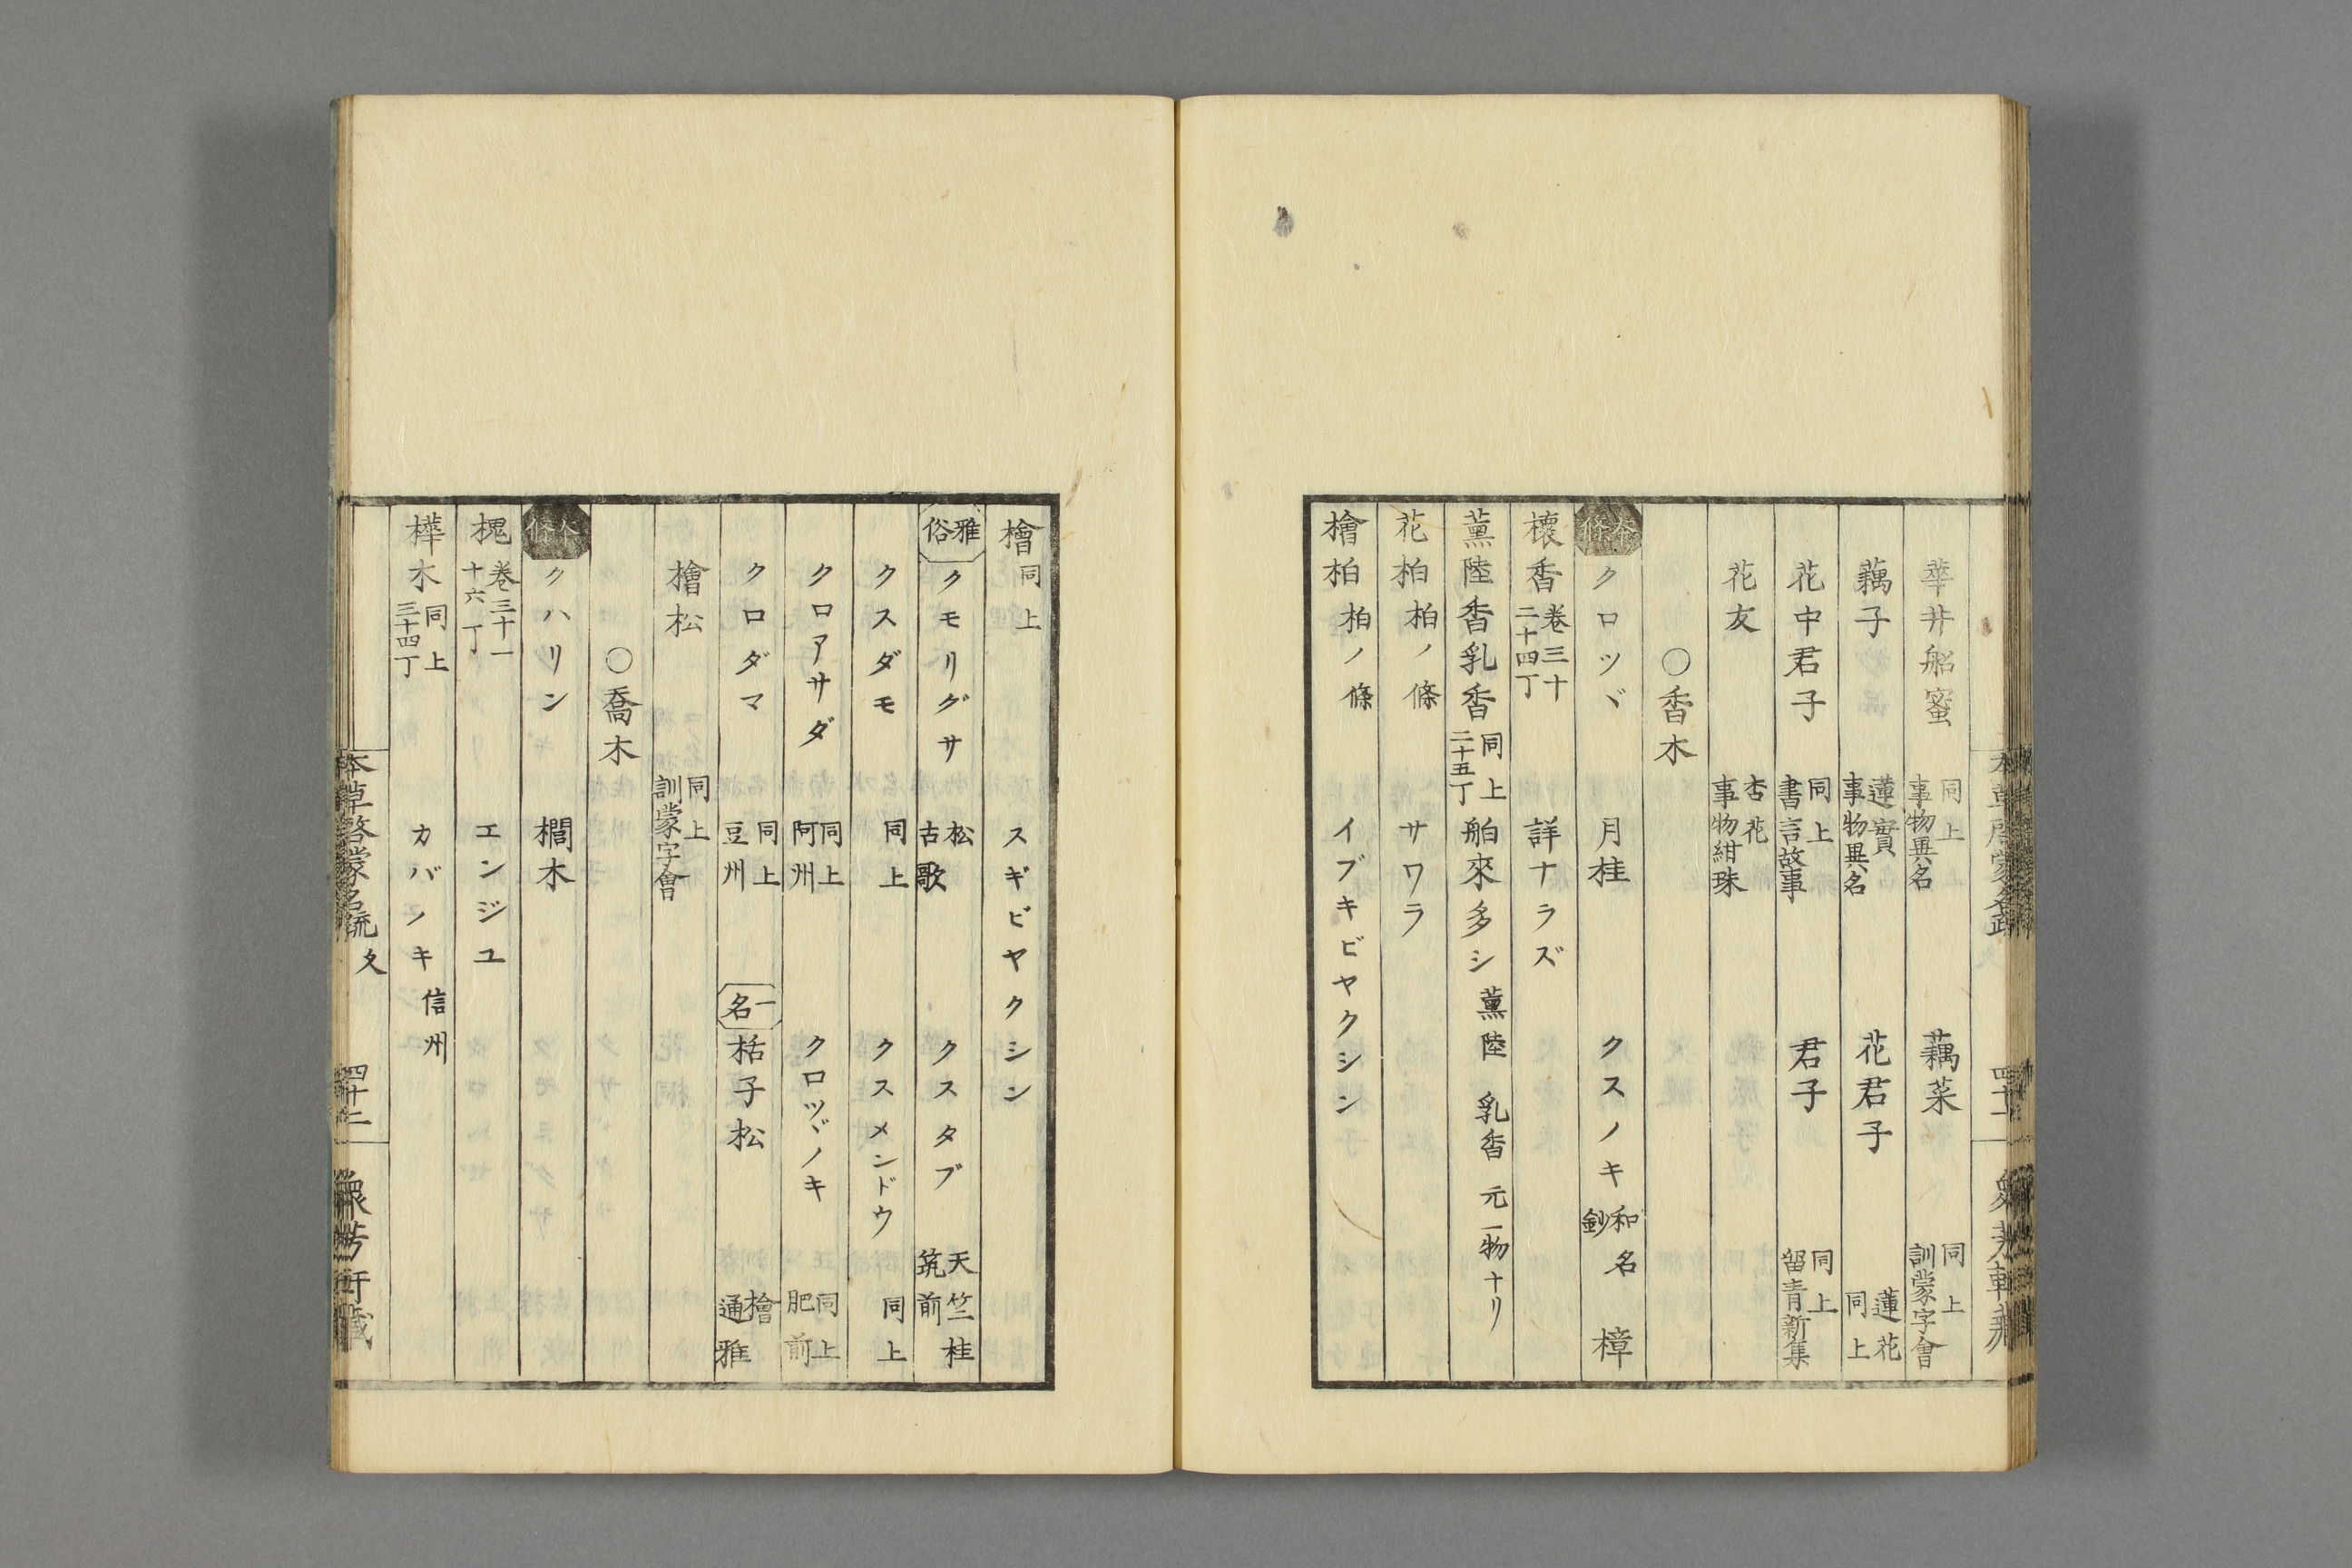 華井船蜜 同上 事物異名 藕菜 同上 訓蒙字會
藕子 蓮實 事物異名 花君子 蓮花 同上
花中君子 同上 書言故事 君子 同上 留青新集
花友 杏花 事物紺珠
〇香木
本條 クロツヾ 月桂 クスノキ 和名鈔 樟
櫰香 卷三十 二十四丁 詳ナラズ
薫陸香乳香 同上 二十五丁 舶來多シ薫陸 乳香 元一物ナリ
花柏 柏ノ條 サワラ
檜柏 柏ノ條 イブキビヤクシン
檜 同上 スギビヤクシン
雅俗 クモリグサ 松 古歌 クスタブ 天竺桂 筑前
クスダモ 同上 クスメンドウ 同上
クロアサダ 同上 阿州 クロツヾノキ 同上 肥前
クロダマ 同上 豆州 一名 栝子松 檜 通雅
檜松 同上 訓蒙字會
〇喬木
本條 クハリン 櫚木
槐 卷三十一 十六丁 エンジユ
樺木 同上 三十四丁 カバノキ 信州
本草啓蒙名疏 夊 四十二